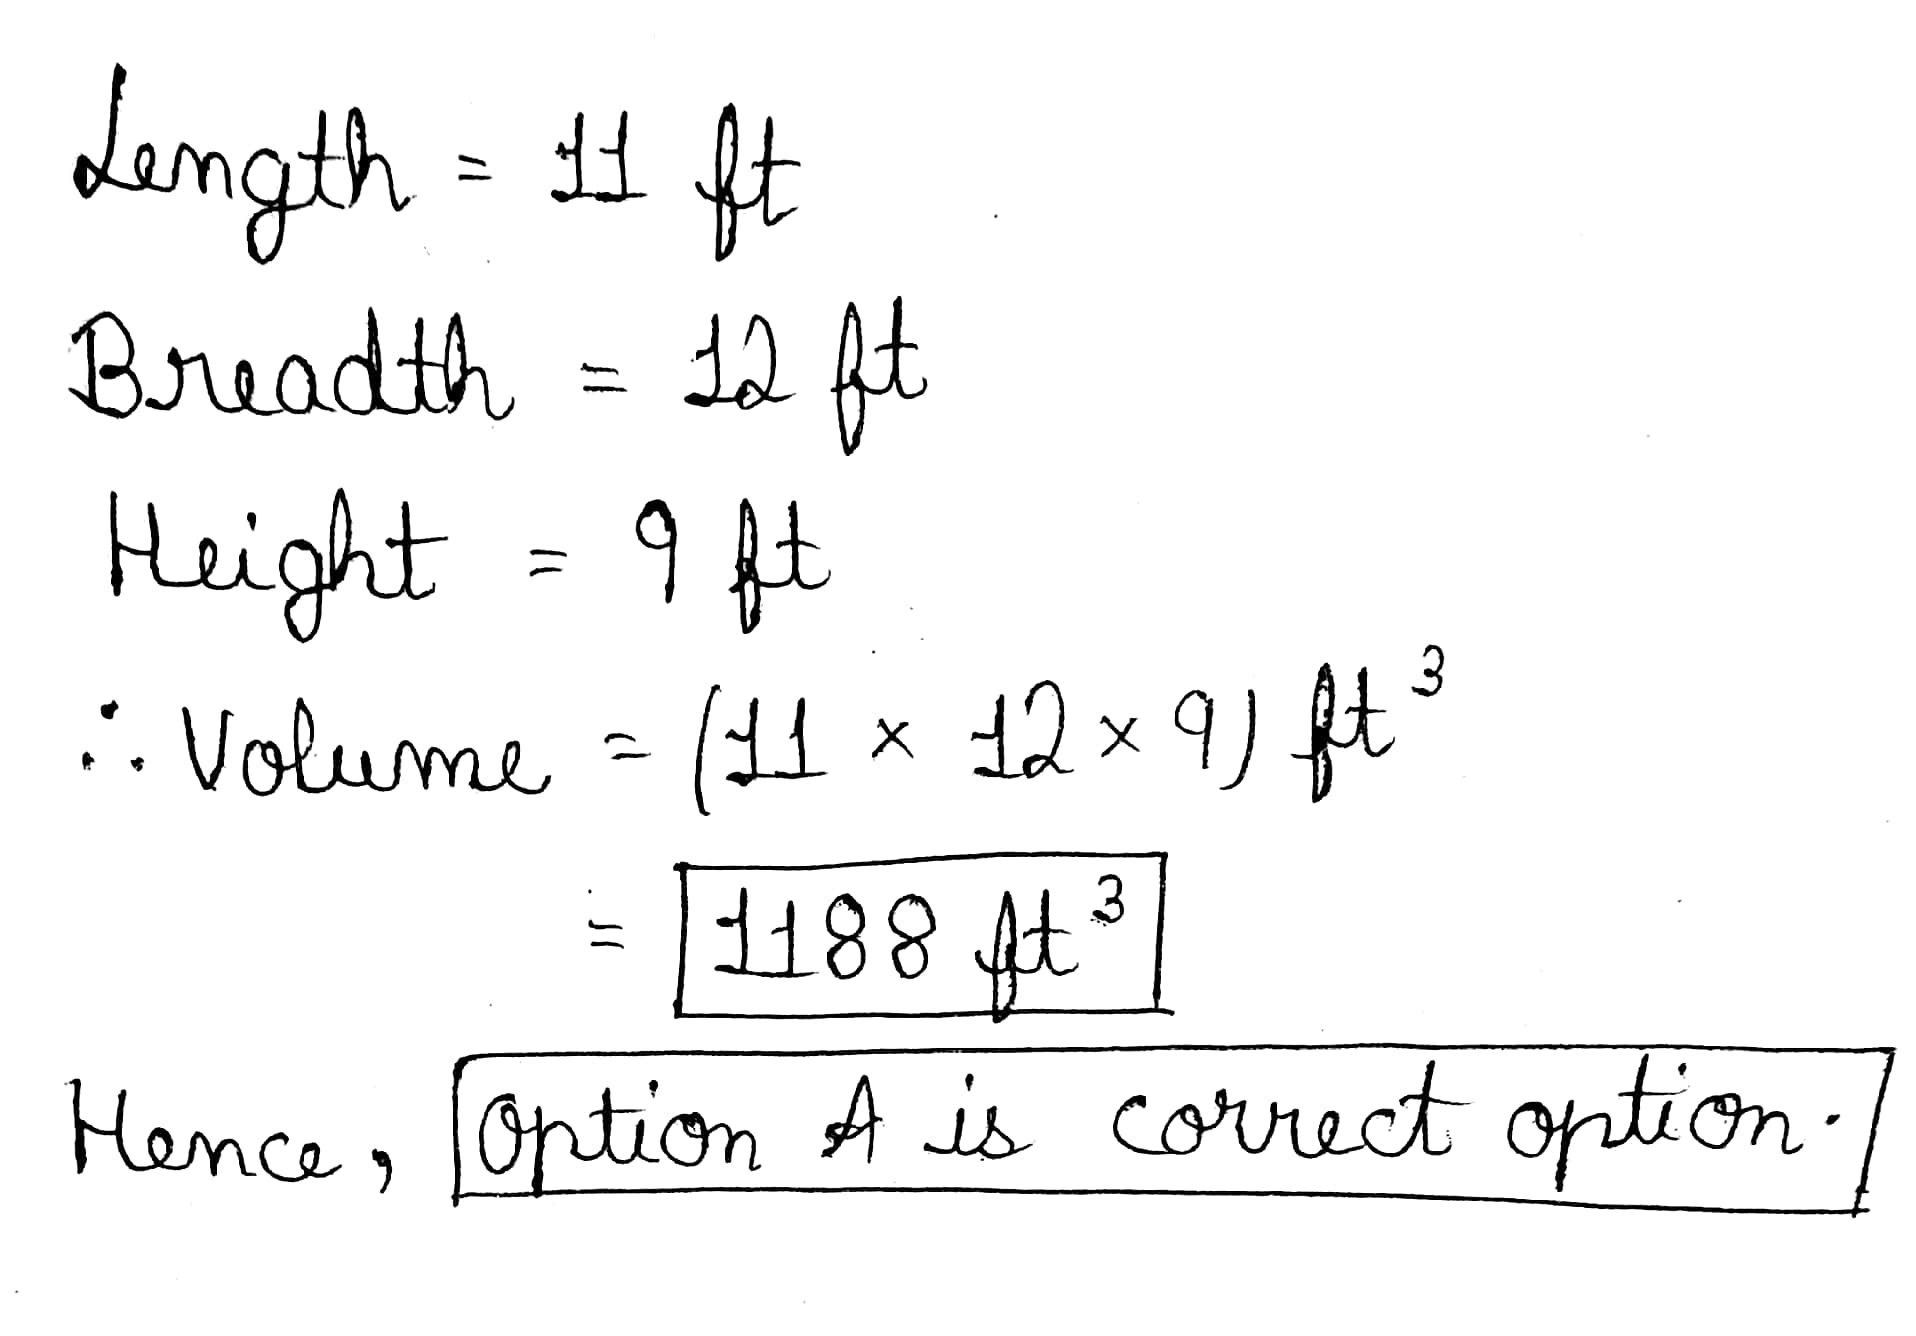 Length = 11 ft
Breadth = 12 ft
Height = 9 ft
∴ Volume = (11 × 12 × 9) ft³
= 1188 ft³
Hence, Option A is correct option.